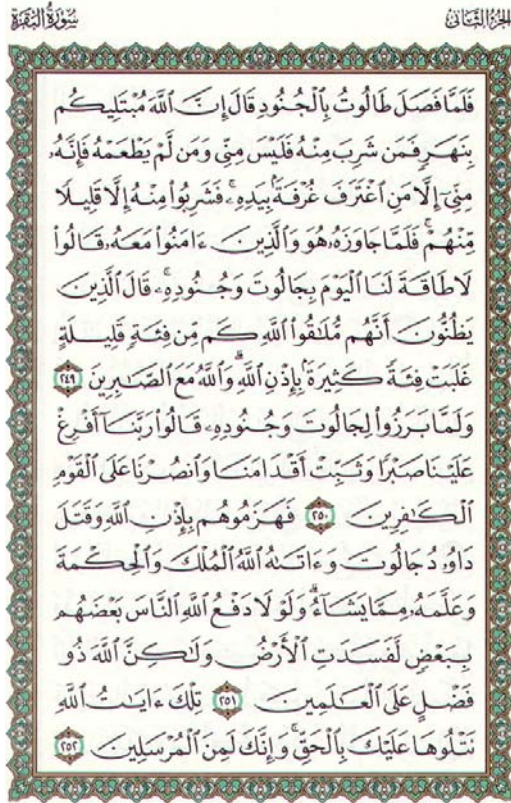 سُورَةُ البَقَرَةِ
الجُزْءُ الثَّانِي
فَلَمَّا فَصَلَ طَالُوتُ بِٱلْجُنُودِ قَالَ إِنَّ ٱللَّهَ مُبْتَلِيكُم
بِنَهَرٍ فَمَن شَرِبَ مِنْهُ فَلَيْسَ مِنِّى وَمَن لَّمْ يَطْعَمْهُ فَإِنَّهُۥ
مِنِّىٓ إِلَّا مَنِ ٱغْتَرَفَ غُرْفَةًۢ بِيَدِهِۦ ۚ فَشَرِبُوا۟ مِنْهُ إِلَّا قَلِيلًا
مِّنْهُمْ ۚ فَلَمَّا جَاوَزَهُۥ هُوَ وَٱلَّذِينَ ءَامَنُوا۟ مَعَهُۥ قَالُوا۟
لَا طَاقَةَ لَنَا ٱلْيَوْمَ بِجَالُوتَ وَجُنُودِهِۦ ۚ قَالَ ٱلَّذِينَ
يَظُنُّونَ أَنَّهُم مُّلَـٰقُوا۟ ٱللَّهِ كَم مِّن فِئَةٍ قَلِيلَةٍ
غَلَبَتْ فِئَةً كَثِيرَةًۢ بِإِذْنِ ٱللَّهِ ۗ وَٱللَّهُ مَعَ ٱلصَّـٰبِرِينَ ٢٤٩
وَلَمَّا بَرَزُوا۟ لِجَالُوتَ وَجُنُودِهِۦ قَالُوا۟ رَبَّنَآ أَفْرِغْ
عَلَيْنَا صَبْرًا وَثَبِّتْ أَقْدَامَنَا وَٱنصُرْنَا عَلَى ٱلْقَوْمِ
ٱلْكَـٰفِرِينَ ٢٥٠ فَهَزَمُوهُم بِإِذْنِ ٱللَّهِ وَقَتَلَ
دَاوُۥدُ جَالُوتَ وَءَاتَىٰهُ ٱللَّهُ ٱلْمُلْكَ وَٱلْحِكْمَةَ
وَعَلَّمَهُۥ مِمَّا يَشَآءُ ۗ وَلَوْلَا دَفْعُ ٱللَّهِ ٱلنَّاسَ بَعْضَهُم
بِبَعْضٍ لَّفَسَدَتِ ٱلْأَرْضُ وَلَـٰكِنَّ ٱللَّهَ ذُو
فَضْلٍ عَلَى ٱلْعَـٰلَمِينَ ٢٥١ تِلْكَ ءَايَـٰتُ ٱللَّهِ
نَتْلُوهَا عَلَيْكَ بِٱلْحَقِّ ۚ وَإِنَّكَ لَمِنَ ٱلْمُرْسَلِينَ ٢٥٢